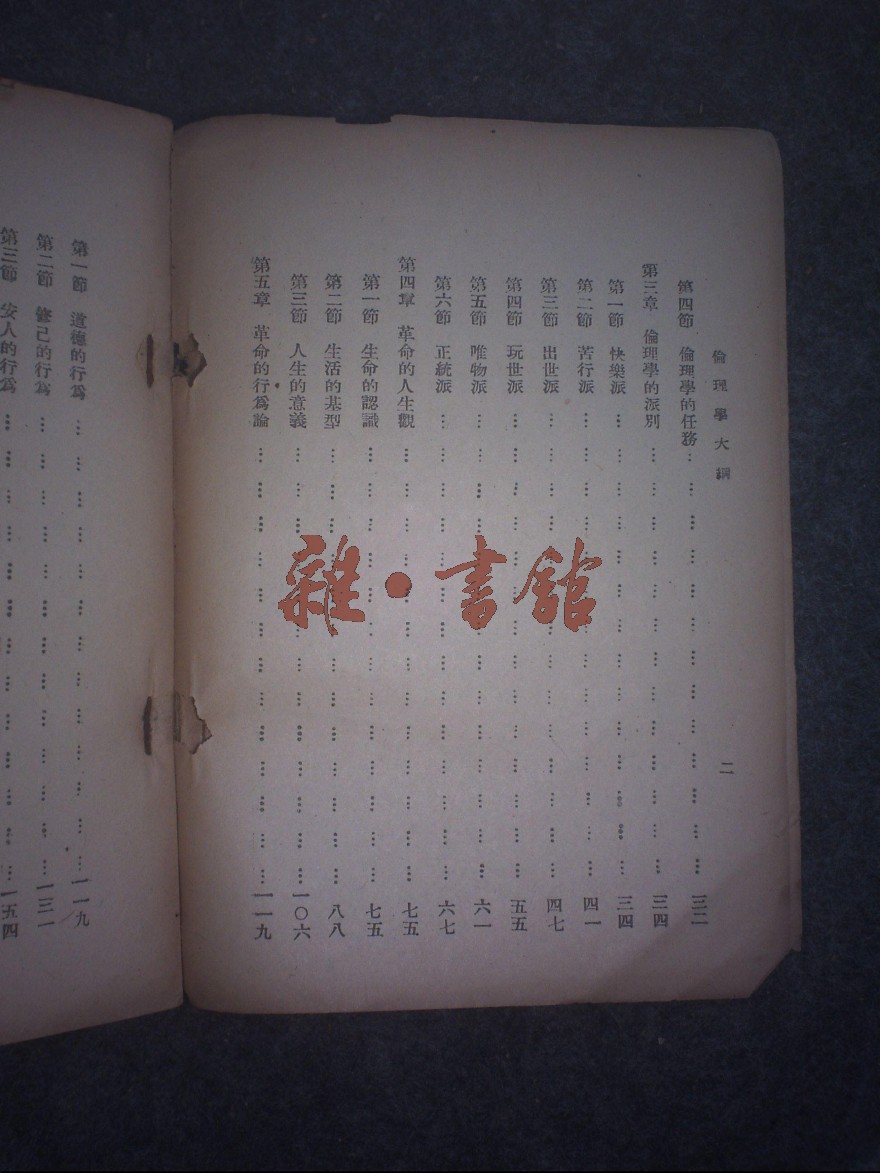 倫理學大綱
二
第四節 倫理學的任務 三二
第三章 倫理學的派別 三四
第一節 快樂派 三四
第二節 苦行派 四一
第三節 出世派 四七
第四節 玩世派 五五
第五節 唯物派 六一
第六節 正統派 六七
第四章 革命的人生觀 七五
第一節 生命的認識 七五
第二節 生活的基型 八八
第三節 人生的意義 一〇六
第五章 革命的行爲論 一一九
第一節 道德的行爲 一一九
第二節 修己的行爲 一三一
第三節 安人的行爲 一五四
雜·書館